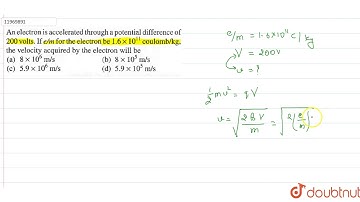 11969891
An electron is accelerated through a potential difference of
200 volts. If e/m for the electron be 1.6×10¹¹ coulomb/kg,
the velocity acquired by the electron will be
(a) 8×10⁶ m/s (b) 8×10⁵ m/s
(c) 5.9×10⁶ m/s (d) 5.9×10⁵ m/s
e/m = 1.6×10¹¹ C/kg
V = 200V
v = ?
½mv² = qV
v = √(2qV/m) = √(2(e/m)
doubtnut